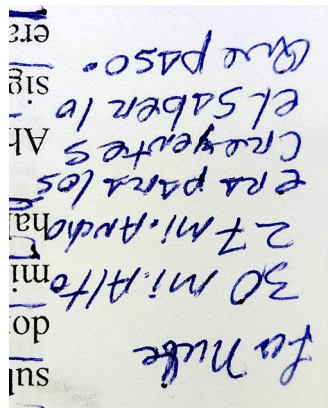 La Nube
30 mi. Alto
27 mi. Ancho
era para los
Creyentes
el saber lo
Que paso.
sub
mi
Ah
sig
era